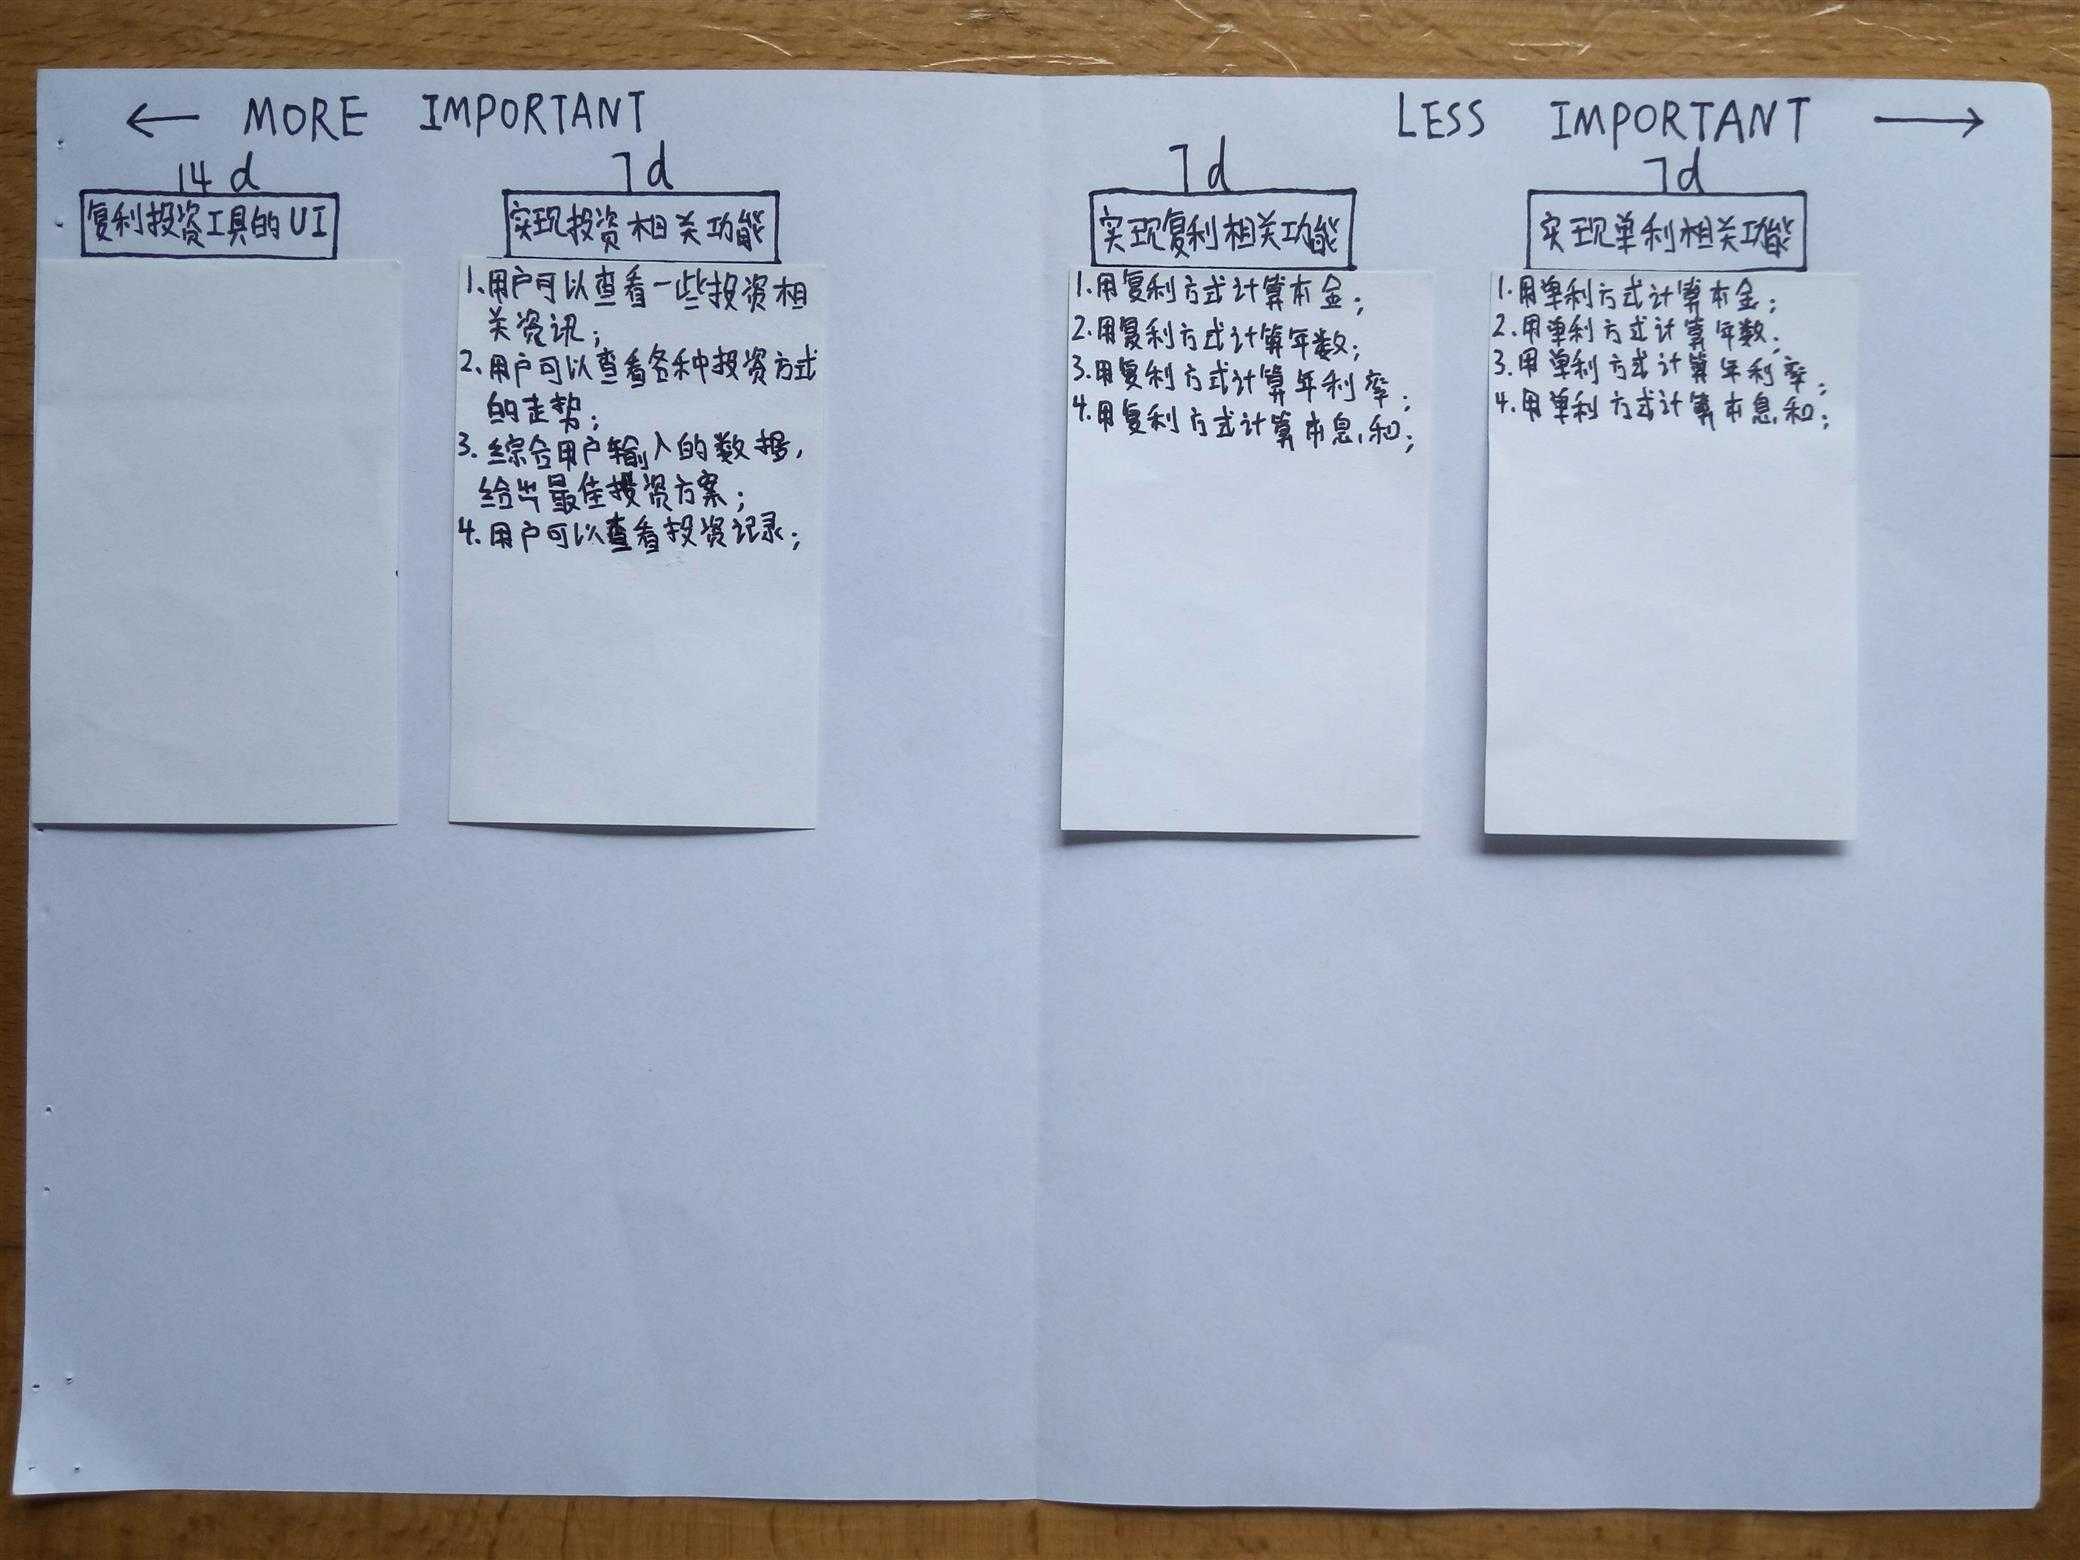 ← MORE IMPORTANT
LESS IMPORTANT →
14 d
复利投资工具的UI
7d
实现投资相关功能
1.用户可以查看一些投资相
关资讯;
2.用户可以查看各种投资方式
的走势;
3.综合用户输入的数据,
给出最佳投资方案;
4.用户可以查看投资记录;
7d
实现复利相关功能
1.用复利方式计算本金;
2.用复利方式计算年数;
3.用复利方式计算年利率;
4.用复利方式计算本息和;
7d
实现单利相关功能
1.用单利方式计算本金;
2.用单利方式计算年数;
3.用单利方式计算年利率;
4.用单利方式计算本息和;